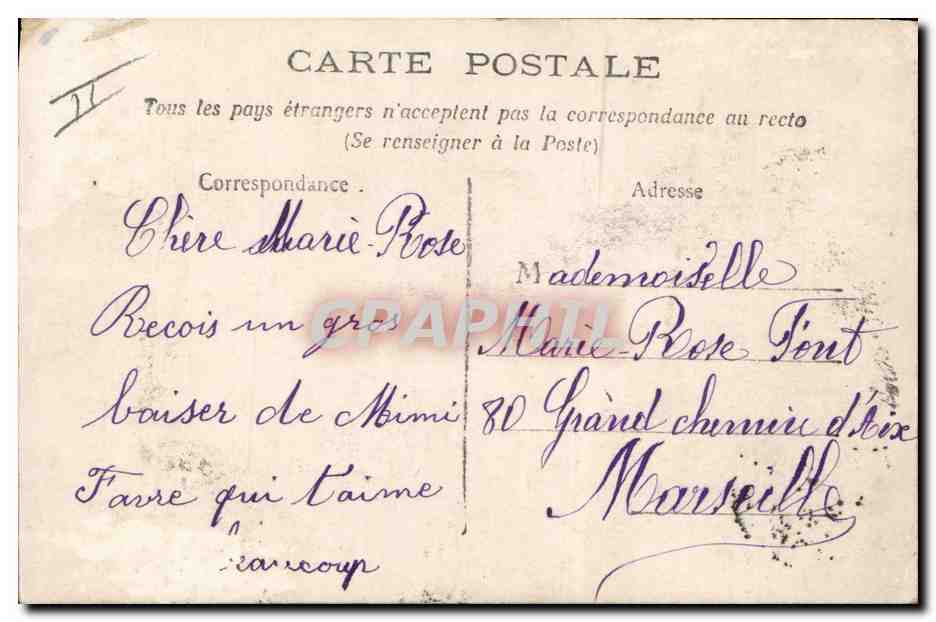 CARTE POSTALE
Tous les pays étrangers n'acceptent pas la correspondance au recto
(Se renseigner à la Poste)
Correspondance.
Chère Marie-Rose
Recois un gros
baiser de Mimi
Favre qui t'aime
beaucoup
Adresse
Mademoiselle
Marie-Rose Font
80 Grand chemin d'Aix
Marseille
CPAPHIL